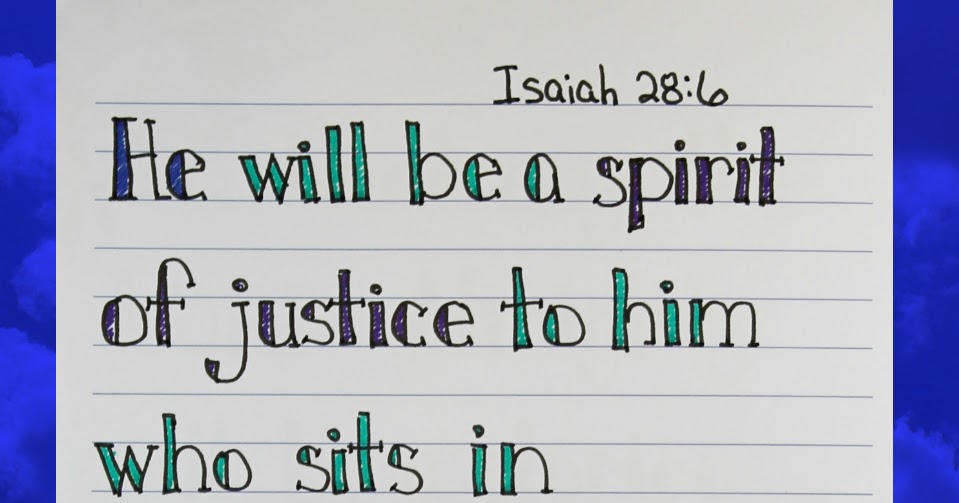 Isaiah 28:6
He will be a spirit
of justice to him
who sits in